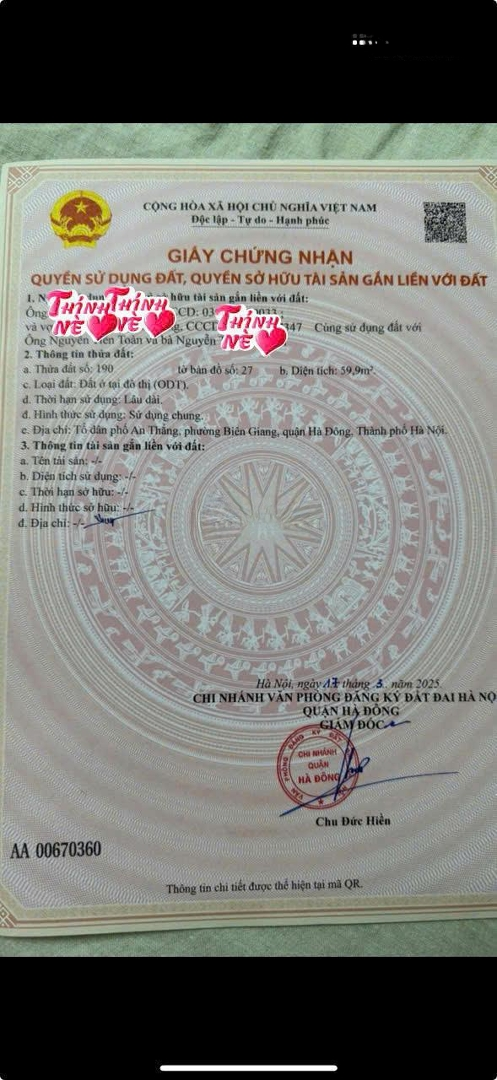 CỘNG HÒA XÃ HỘI CHỦ NGHĨA VIỆT NAM
Độc lập - Tự do - Hạnh phúc
GIẤY CHỨNG NHẬN
QUYỀN SỬ DỤNG ĐẤT, QUYỀN SỞ HỮU TÀI SẢN GẮN LIỀN VỚI ĐẤT
1. hữu tài sản gắn liền với đất:
THÍNH NÈ
THÍNH NÈ
THÍNH NÈ
Ông
và vợ 347 Cùng sử dụng đất với
Ông Nguyễn Toàn và bà Nguyễn
2. Thông tin thửa đất:
a. Thửa đất số: 190 tờ bản đồ số: 27 b. Diện tích: 59,9m².
c. Loại đất: Đất ở tại đô thị (ODT).
d. Thời hạn sử dụng: Lâu dài.
đ. Hình thức sử dụng: Sử dụng chung.
e. Địa chỉ: Tổ dân phố An Thắng, phường Biên Giang, quận Hà Đông, Thành phố Hà Nội.
3. Thông tin tài sản gắn liền với đất:
a. Tên tài sản: -/-
b. Diện tích sử dụng: -/-
c. Thời hạn sở hữu: -/-
d. Hình thức sở hữu: -/-
đ. Địa chỉ: -/-
Hà Nội, ngày 17 tháng 3. năm 2025.
CHI NHÁNH VĂN PHÒNG ĐĂNG KÝ ĐẤT ĐAI HÀ NỘ
QUẬN HÀ ĐÔNG
GIÁM ĐỐC
CHI NHÁNH
QUẬN
HÀ ĐÔNG
Chu Đức Hiền
AA 00670360
Thông tin chi tiết được thể hiện tại mã QR.